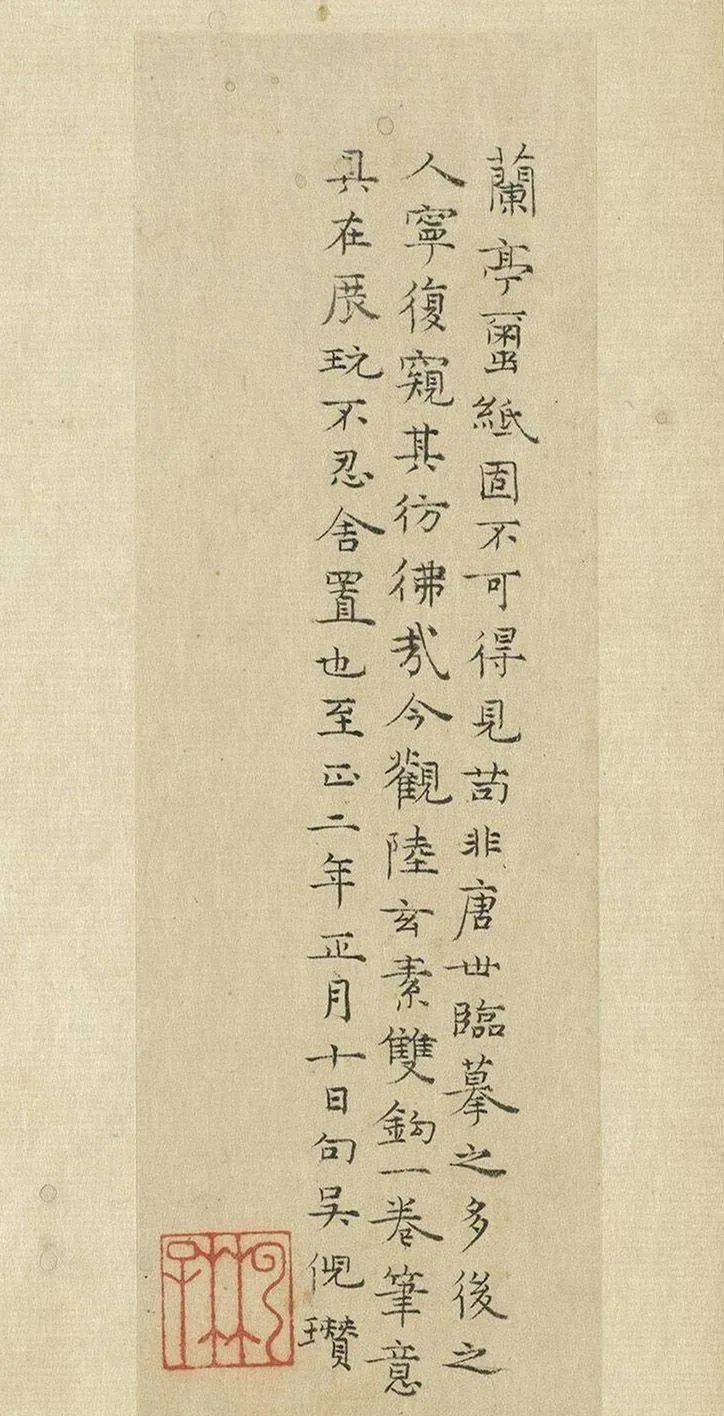 蘭亭璽紙固不可得見苟非唐世臨摹之多後之
人寧復窺其彷彿哉今觀陸玄素雙鈎一卷筆意
具在展玩不忍舍置也至正二年正月十日句吳倪瓚